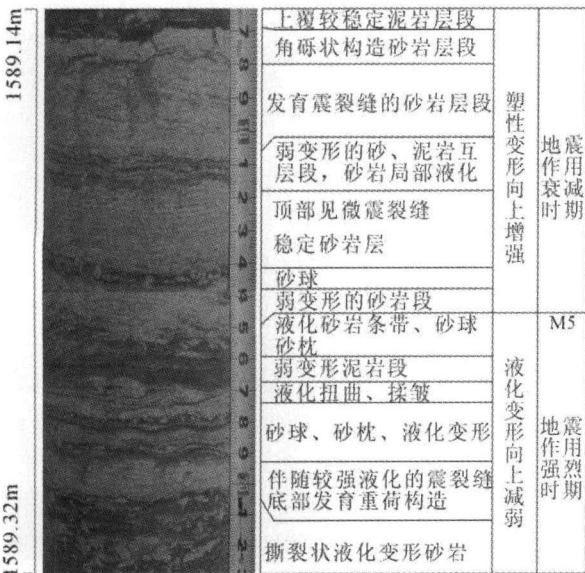 1589.14m
1589.32m
7
8
9
1
2
3
4
5
6
7
8
9
1
2
上覆较稳定泥岩层段
角砾状构造砂岩层段
发育震裂缝的砂岩层段
弱变形的砂、泥岩互
层段，砂岩局部液化
顶部见微震裂缝
稳定砂岩层
砂球
弱变形的砂岩段
液化砂岩条带、砂球
砂枕
弱变形泥岩段
液化扭曲、揉皱
砂球、砂枕、液化变形
伴随较强液化的震裂缝
底部发育重荷构造
撕裂状液化变形砂岩
塑性变形向上增强
液化变形向上减弱
地震作用衰减时期
M5
地震作用强烈时期